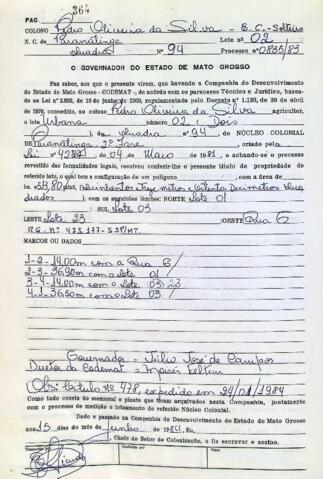 PAG. 364
COLONO Pedro Oliveira da Silva - E. C. Solteiro
N. C. de Paranatinga Lote nº 02
Quadra nº 94 Processo nº 0835/83
O GOVERNADOR DO ESTADO DE MATO GROSSO
Faz saber, aos que o presente virem, que havendo a Companhia de Desenvolvimento
do Estado de Mato Grosso - CODEMAT-, de acordo com os pareceres Técnico e Jurídico, basea-
da na Lei nº de de junho de regulamentada pelo Decreto nº de de abril
de 1979, concedido, ao colono Pedro Oliveira da Silva agricultor,
o lote Urbano número 02 ( Dois
) da Quadra nº 94 NÚCLEO COLONIAL
de Paranatinga - 2ª Fase criado pela
Lei nº 4287 de 04 de Maio de 1981, e achando-se o processo
revestido das formalidades legais, resolveu conferir o presente título de propriedade do
referido lote, o qual tem a configuração de um polígono com a área de
513,80
), com os seguintes limites: NORTE Lote 01
SUL Lote 03
LESTE Lote 23 OESTE Rua 6
R.G. nº 423.177-SSP/MT.
MARCOS OU DADOS
1-2 - 14,00m com a Rua 6
2-3 - 36,90m com o Lote 01
3-4 - 14,00m com o Lote 23
4-1 - 36,50m com o Lote 03
Governador - Júlio José de Campos
Diretor da Codemat - Moisés Feltrin
Obs: título nº 478, expedido em 24/01/1984
Como tudo consta do memorial e planta que foram arquivados nesta Companhia, juntamente
com o processo de medição e loteamento do referido Núcleo Colonial.
Dado e passado na Companhia de Desenvolvimento do Estado de Mato Grosso
aos 15 dias do mês de junho de 1984. Eu,
Chefe do Setor de Colonização, o fiz escrever e assino.